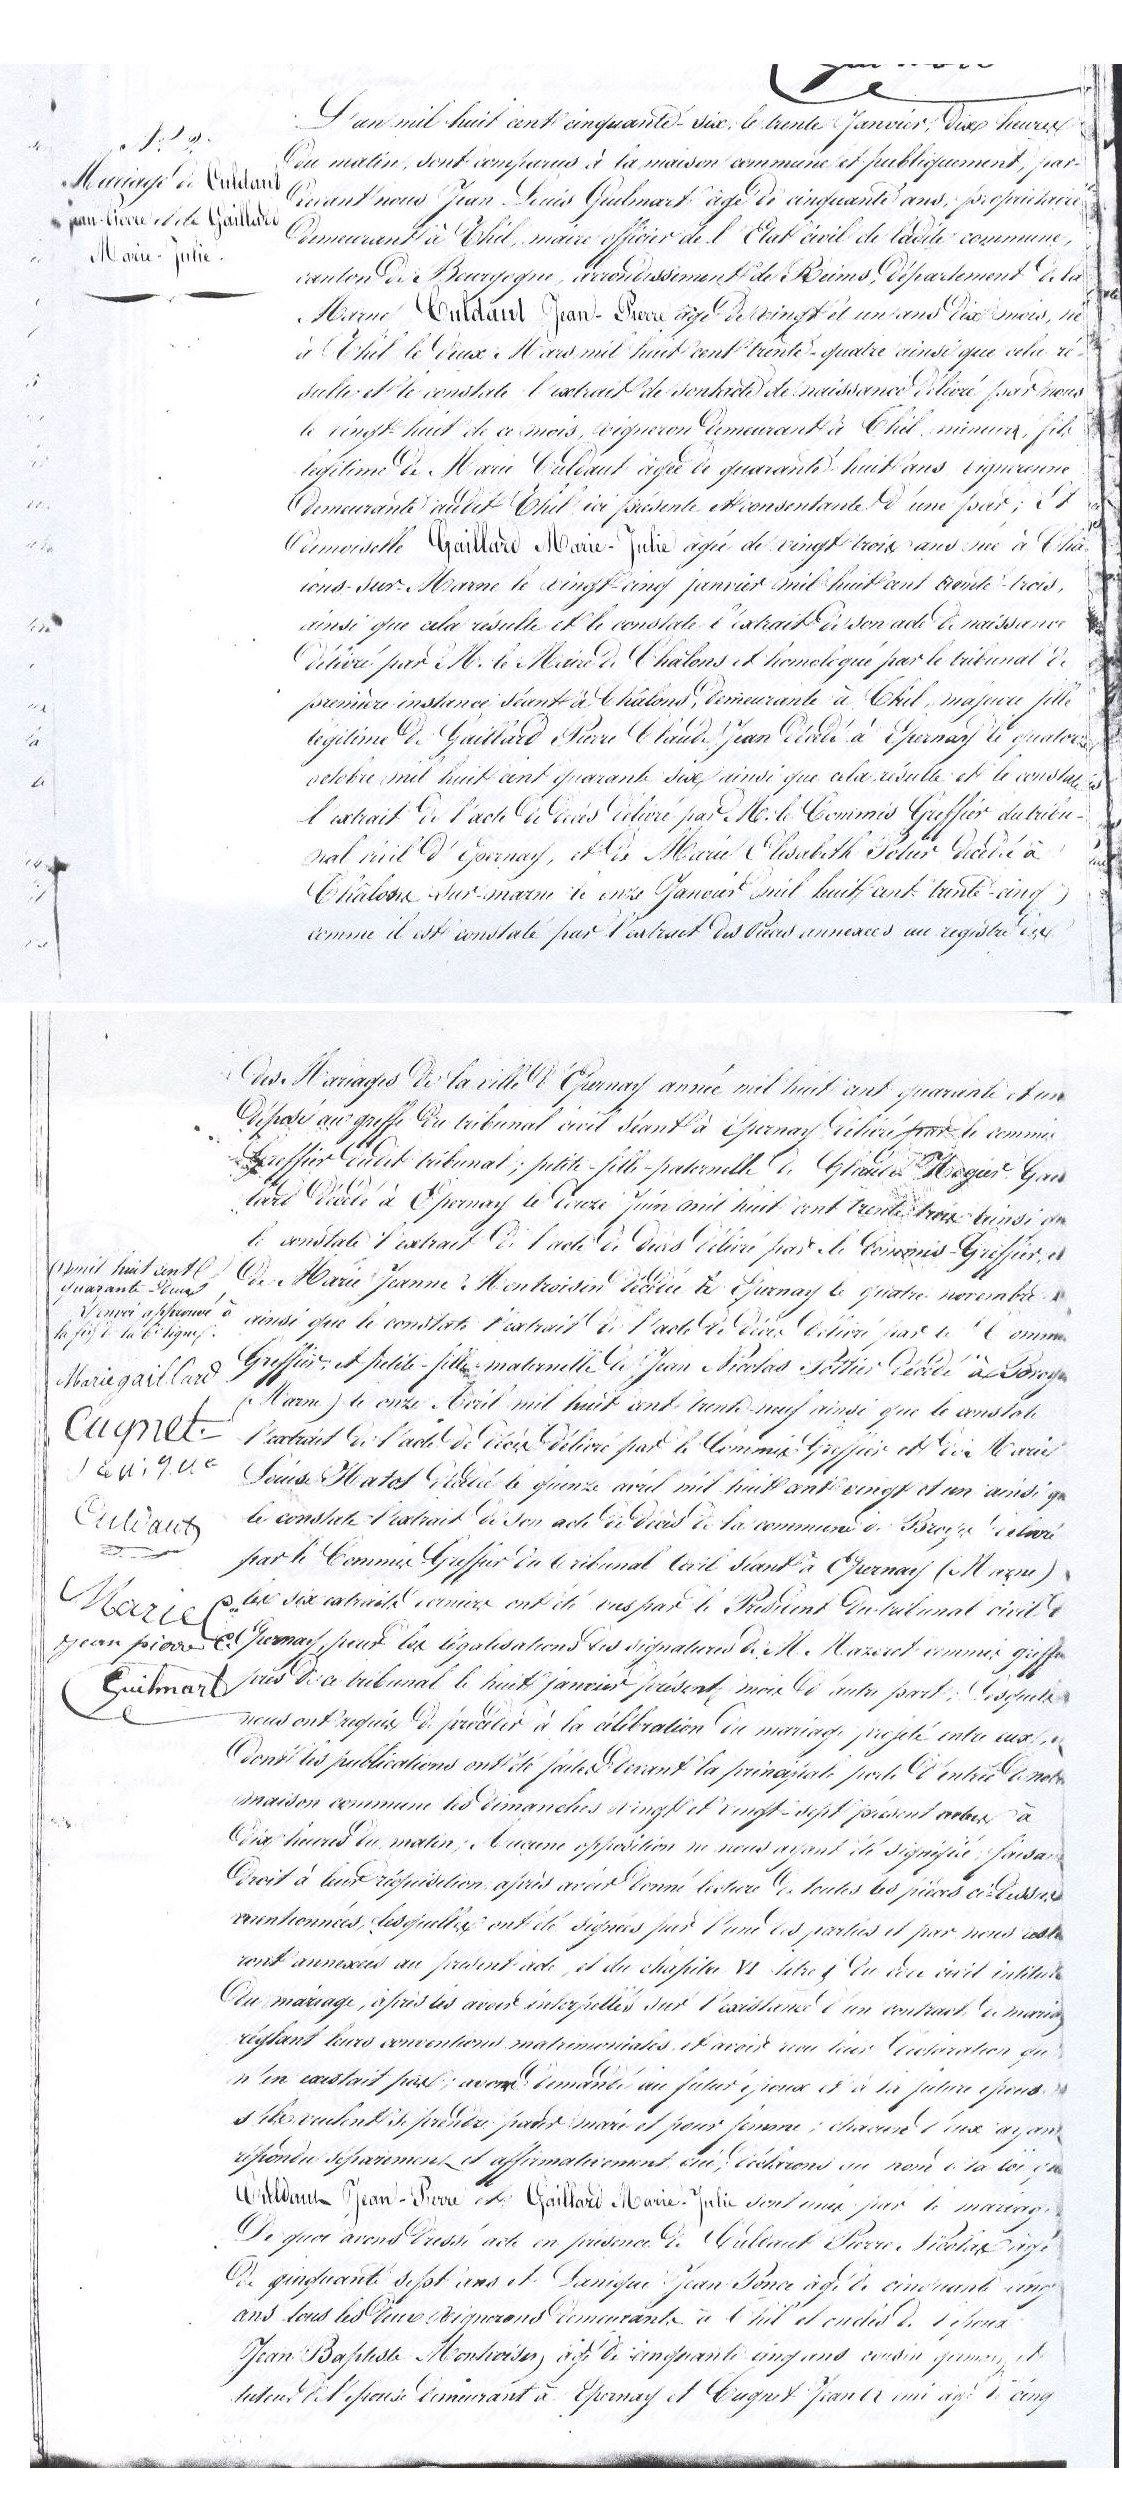 N° 2.
Mariage de Culdaut
jean-Pierre et de Gaillard
Marie-Julie.
L'an mil huit cent cinquante-six, le trente Janvier, dix heures
du matin, sont comparus à la maison commune et publiquement, par-
devant nous Jean Louis Guilmart âgé de cinquante ans, propriétaire
demeurant à Thil, maire officier de l'Etat civil de ladite commune,
canton de Bourgogne, arrondissement de Reims, département de la
Marne Culdaut Jean-Pierre âgé de vingt et un ans dix mois, né
à Thil le deux Mars mil huit cent trente-quatre ainsi que cela ré-
sulte et le constate l'extrait de son acte de naissance délivré par nous
le vingt-huit de ce mois, vigneron demeurant à Thil, mineur, fils
légitime de Marie Culdaut âgée de quarante-huit ans vigneronne
demeurante audit Thil ici présente et consentante d'une part; Et
demoiselle Gaillard Marie-Julie âgée de vingt trois ans née à Châ-
lons-sur-Marne le vingt-cinq janvier mil huit cent trente-trois,
ainsi que cela résulte et le constate l'extrait de son acte de naissance
délivré par M. le Maire de Châlons et homologué par le tribunal de
première instance séant à Châlons, demeurante à Thil, majeure fille
légitime de Gaillard Pierre Claude Jean décédé à Epernay le quatorze
octobre mil huit cent quarante six ainsi que cela résulte et le constate
l'extrait de l'acte de décès délivré par M. le Commis Greffier du tribu-
nal civil d'Epernay, et de Marie Elisabeth Potier décédée à
Châlons-sur-marne le onze Janvier mil huit cent trente-cinq
comme il est constaté par l'extrait des pièces annexées au registre
des Mariages de la ville d'Epernay année mil huit cent quarante et un
déposé au greffe du tribunal civil séant à Epernay délivré par le commis
Greffier dudit tribunal; petite-fille-paternelle de Claude Gail
lard décédé à Epernay le douze Juin mil huit cent trente trois ainsi que
le constate l'extrait de l'acte de décès délivré par le Commis-Greffier, et
de Marie Jeanne Montvoisin décédée à Epernay le quatre novembre
ainsi que le constate l'extrait de l'acte de décès délivré par le Commis
Greffier, et petite-fille-maternelle de Jean Nicolas Pottier décédé à Broyes
(Marne) le onze Avril mil huit cent trente-neuf ainsi que le constate
l'extrait de l'acte de décès délivré par le Commis Greffier et de Marie
Louise Hatot décédée le quinze avril mil huit cent vingt et un ainsi que
le constate l'extrait de son acte de décès de la commune de Broyes délivré
par le Commis Greffier du tribunal Civil séant à Epernay (Marne)
les six extraits derniers ont été vus par le Président du tribunal civil d'
Epernay, pour les légalisations des signatures de M. Mazeret commis greffier
près de ce tribunal le huit janvier présent mois d'autre part; Lesquels
nous ont requis de procéder à la célébration du mariage projeté entre eux,
dont les publications ont été faites devant la principale porte d'entrée de notre
maison commune les dimanches vingt et vingt-sept présent mois à
dix heures du matin; Aucune opposition ne nous ayant été signifiée, faisant
droit à leur réquisition après avoir donné lecture de toutes les pièces ci-dessus
mentionnées, lesquelles ont été signées par l'une des parties et par nous
ront annexées au présent acte, et du chapitre VI titre du code civil intitulé
du mariage, après les avoir interpellés sur l'existence d'un contract de mariage
réglant leurs conventions matrimoniales et avoir reçu leur déclaration qu'
n'en existait pas; avons demandé au futur époux et à la future épouse
s'ils veulent se prendre pour mari et pour femme; chacun d'eux ayant
répondu séparément et affirmativement oui, déclarons au nom de la loi que
Culdaut Jean-Pierre et Gaillard Marie-Julie sont unis par le mariage.
De quoi avons dressé acte en présence de Culdaut Pierre Nicolas âgé
de cinquante sept ans et Janique Jean Ponce âgé de cinquante cinq
ans tous les deux vignerons demeurants à Thil et oncles de l'époux
Jean Baptiste Montvoisin, âgé de cinquante cinq ans cousin germain et
tuteur de l'épouse demeurant à Epernay et Cugnet Jean ami âgé de cinq
(1) mil huit cent
quarante deux
Renvoi approuvé à
la fin de la 6e ligne.
Marie gaillard
Cugnet
Culdaut
Marie C.
Jean pierre C.
Guilmart